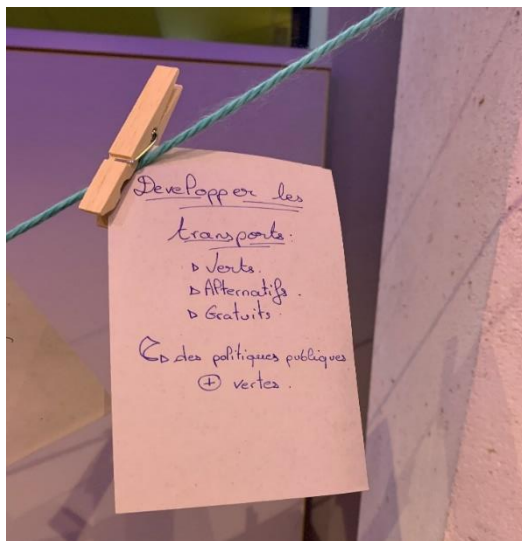 Developper les
transports:
▷ Verts.
▷ Alternatifs.
▷ Gratuits.
↪ des politiques publiques
⊕ vertes.